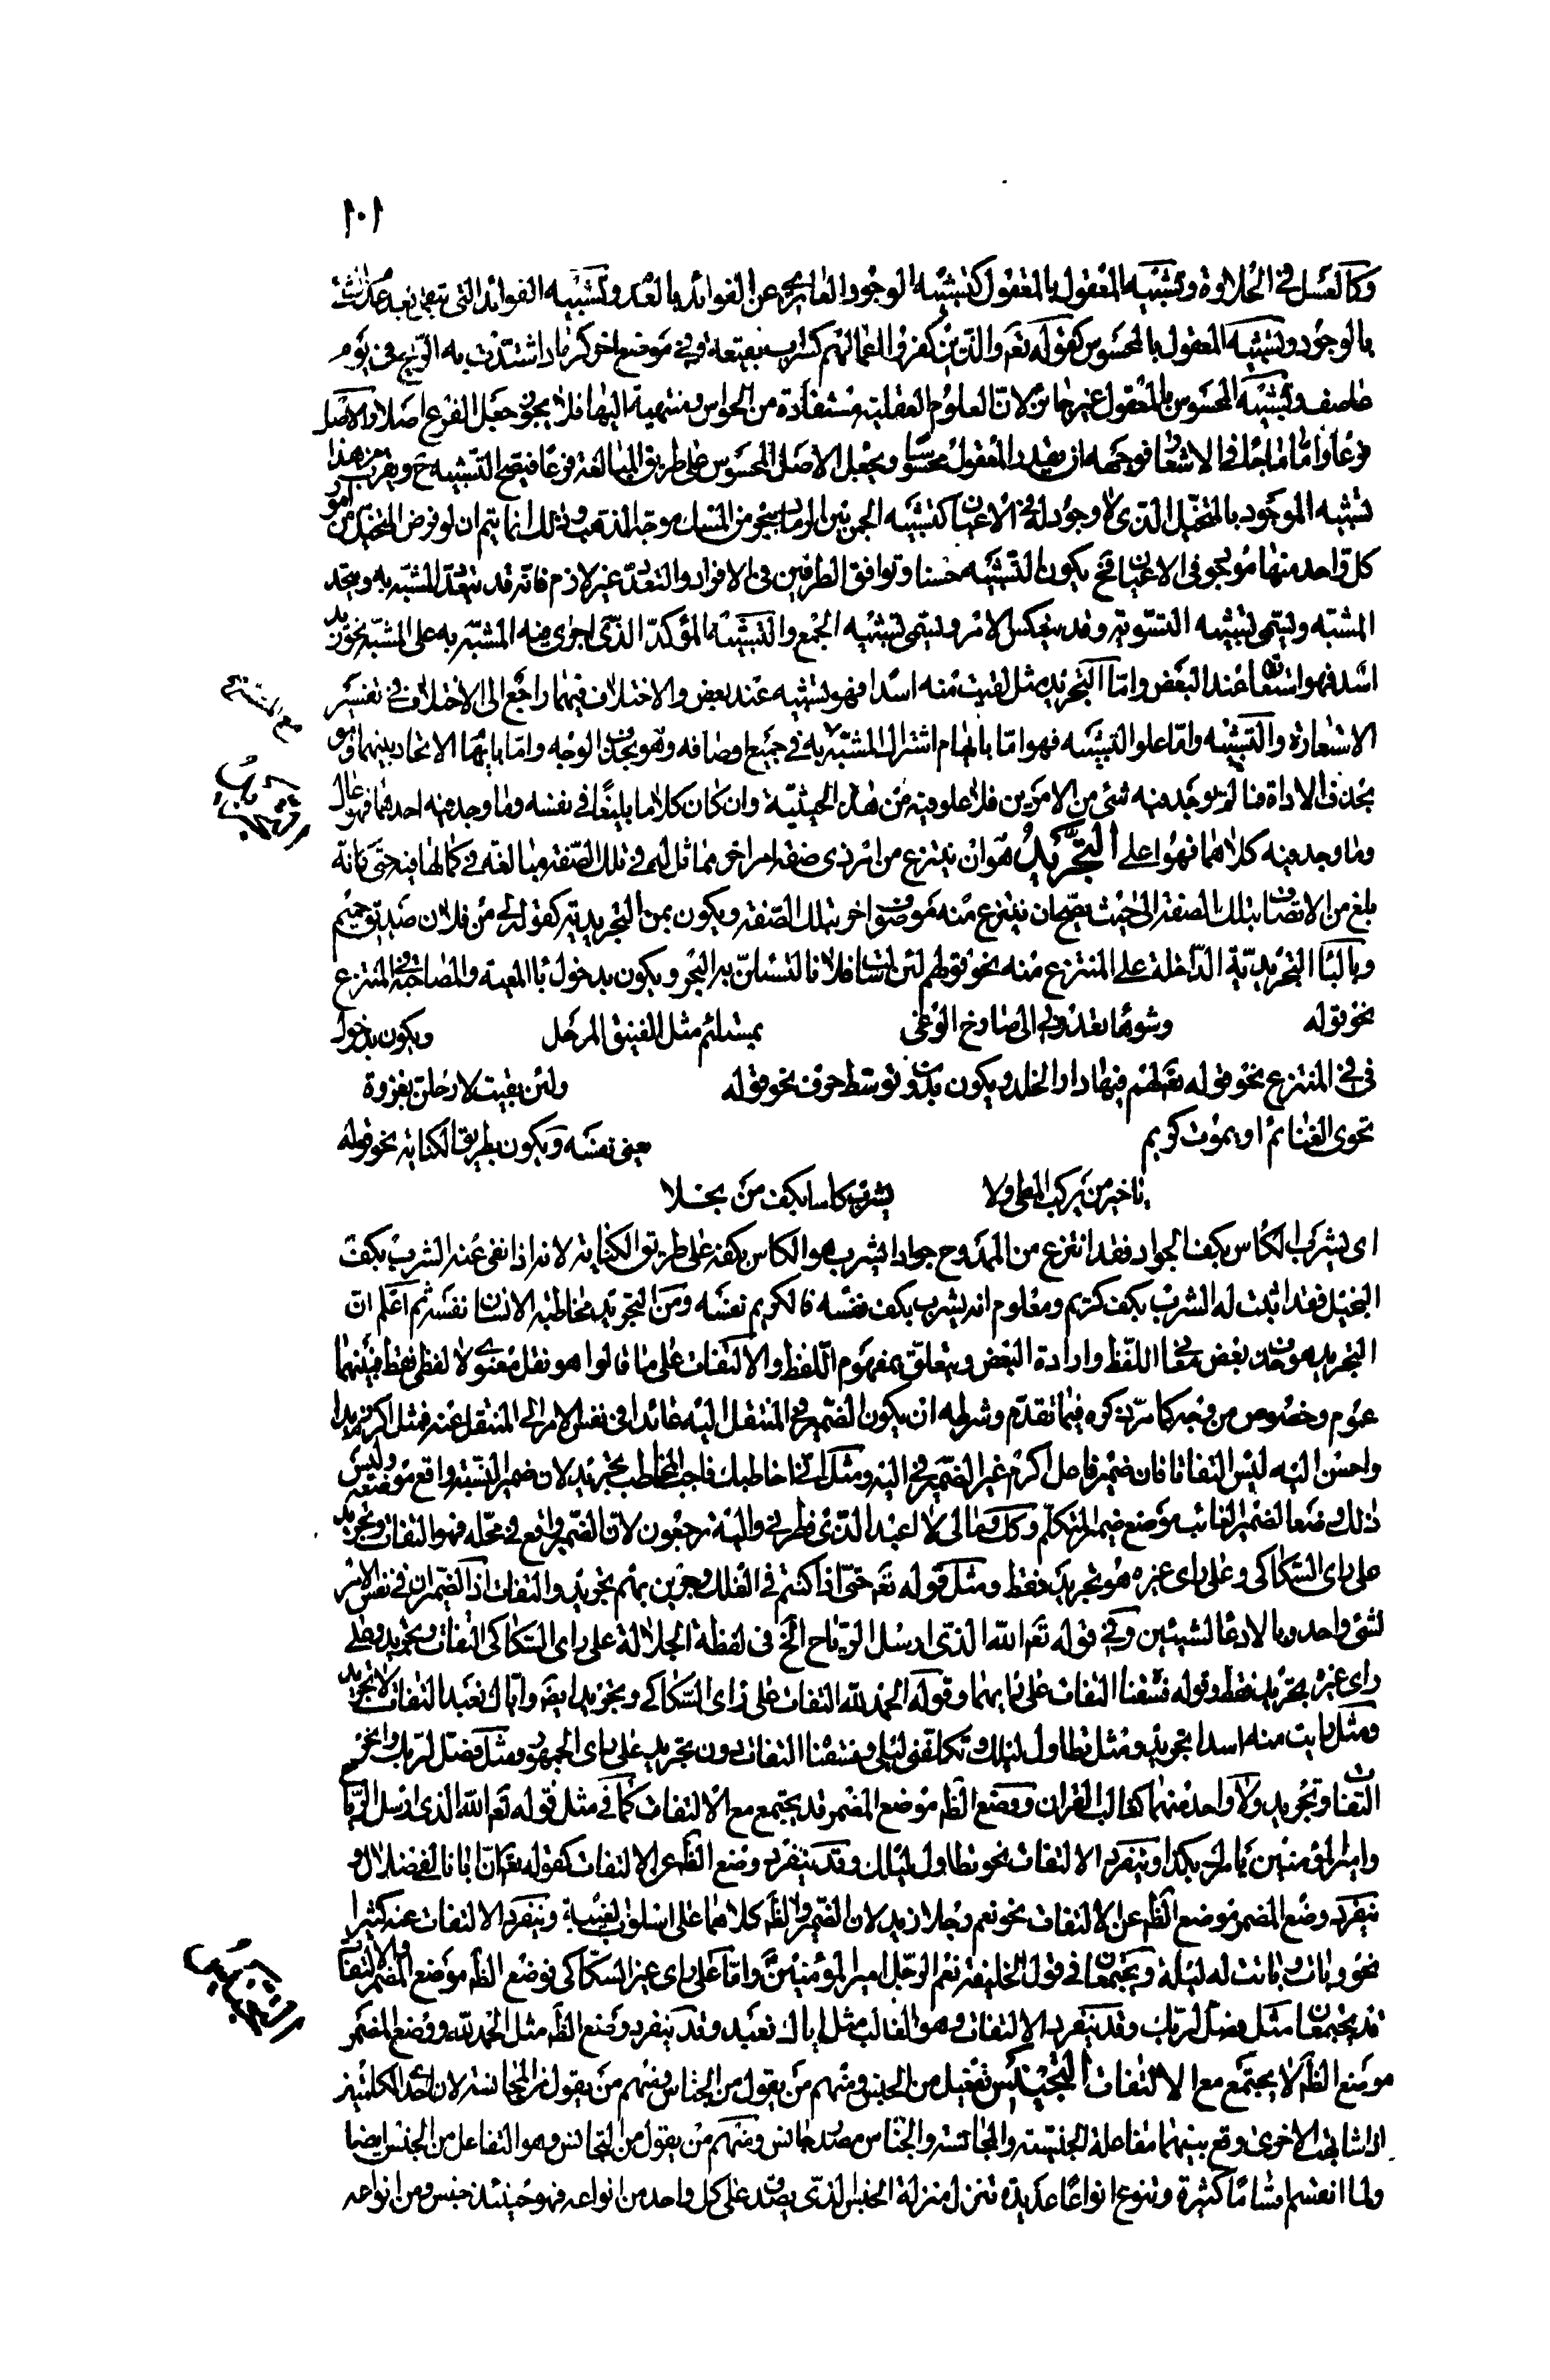 ١٠١
وكالعسل فى الحلاوة وتشبيه المعقول بالمعقول كتشبيه الوجود العارى عن الفوائد بالعدم وتشبيه الفوائد التى تبقى بعد عدم الشئ
بالوجود وتشبيه المعقول بالمحسوس كقوله تعم والذين كفروا اعمالهم كسراب بقيعة وفى موضع اخر كرماد اشتدت به الريح فى يوم
عاصف وتشبيه المحسوس بالمعقول غير جائز لان العلوم العقلية مستفادة من الحواس ومنتهية اليها فلا يجوز جعل الفرع اصلا والاصل
فرعا واما ما جاء فى الاشعار فوجهه ان يقدر المعقول محسوسا ويجعل الاصل المحسوس على طريق المبالغة فرعا فيصح التشبيه ح ويقرب من هذا
تشبيه الموجود بالمتخيل الذى لا وجود له فى الاعيان كتشبيه الجمر بين الرماد ببحر من المسك موجه الذهب وذلك انما يتم ان لو فرض المتخيل من امور
كل واحد منها موجود فى الاعيان فح يكون التشبيه حسنا وتوافق الطرفين فى الافراد والتعدد غير لازم فانه قد يتعدد المشبه به ويتحد
المشبه ويسمى تشبيه التسوية وقد ينعكس الامر ويسمى تشبيه الجمع والتشبيه المؤكد الذى اجرى فيه المشبه به على المشبه نحو زيد
اسد فهو استعارة عند البعض واما التجريد مثل لقيت منه اسدا فهو تشبيه عند بعض والاختلاف فيهما راجع الى الاختلاف فى تفسير
الاستعارة والتشبيه واما علو التشبيه فهو اما بايهام اشتراك المشبه به فى جميع اوصافه وهو بحذف الوجه واما بايهام الاتحاد بينهما وهو
بحذف الاداة فما لم يوجد فيه شئ من الامرين فلا علو فيه من هذه الحيثية وان كان كلاما بليغا فى نفسه وما وجد فيه احدهما فهو عال
وما وجد فيه كلاهما فهو اعلى التجريد هو ان ينتزع من امر ذى صفة امر اخر مماثل له فى تلك الصفة مبالغة فى كمالها فيه حتى كانه
بلغ من الاتصاف بتلك الصفة الى حيث يصح ان ينتزع منه موصوف اخر بتلك الصفة ويكون بمن التجريدية كقولك لى من فلان صديق حميم
وبالباء التجريدية الداخلة على المنتزع منه نحو قولهم لئن سالت فلانا لتسئلن به البحر ويكون بدخول باء المعية والمصاحبة فى المنتزع
نحو قوله وشوهاء تعدو بى الى صارخ الوغى بمستلئم مثل الفنيق المرحل ويكون بدخول
فى فى المنتزع نحو قوله تعم لهم فيها دار الخلد ويكون بدون توسط حرف نحو قوله ولئن بقيت لارحلن بغزوة
تحوى الغنائم او يموت كريم يعنى نفسه ويكون بطريق الكناية نحو قوله
يا خير من يركب المطى ولا يشرب كاسا بكف من بخلا
اى يشرب الكاس بكف الجواد فقد انتزع من الممدوح جوادا يشرب هو الكاس بكفه على طريق الكناية لانه اذا نفى عنه الشرب بكف
البخيل فقد اثبت له الشرب بكف كريم ومعلوم انه يشرب بكف نفسه فالكريم نفسه ومن التجريد مخاطبة الانسان نفسه ثم اعلم ان
التجريد هو حذف بعض معانى اللفظ وارادة البعض ويتعلق بمفهوم اللفظ والالتفات على ما قالوا هو نقل معنوى لا لفظى فقط فبينهما
عموم وخصوص من وجه كما مر ذكره فيما تقدم وشرطه ان يكون الضمير فى المنتقل اليه عائدا فى نفس الامر الى المنتقل عنه فمثل اكرم زيدا
واحسن اليه ليس التفاتا فان ضمير فاعل اكرم غير الضمير فى اليه ومثل انا خاطبك فاجب المخاطب تجريد لان ضمير النسبة واقع موضعه وليس
ذلك وضع الضمير الغائب موضع ضمير المتكلم وكك ومالى لا اعبد الذى فطرنى واليه ترجعون لان الضمير واقع فى محله فهو التفات وتجريد
على راى السكاكى وعلى راى غيره هو تجريد فقط ومثل قوله تعم حتى اذا كنتم فى الفلك وجرين بهم تجريد والتفات اذ الضميران فى نفس الامر
لشئ واحد وبالادعاء لشيئين وفى قوله تعم الله الذى ارسل الرياح الخ فى لفظة الجلالة على راى السكاكى التفات وتجريد وعلى
راى غيره تجريد فقط وقوله فسقنا التفات على رايهما وقوله الحمد لله التفات على راى السكاكى وتجريد ايضا واياك نعبد التفات لا تجريد
ومثل رايت منه اسدا تجريد ومثل تطاول ليلك وتكلفنى ليلى وفسقنا التفات دون تجريد على راى الجمهور ومثل فصل لربك وانحر
التفات وتجريد ولا واحد منهما كغالب القران ووضع الظ موضع المضمر قد يجتمع مع الالتفات كما فى مثل قوله تعم الله الذى ارسل الرياح
وامير المؤمنين يامرك بكذا وينفرد الالتفات نحو تطاول ليلك وقد ينفرد وضع الظ عن الالتفات كقوله تعم ان ابانا لفى ضلال و
ينفرد وضع المضمر موضع الظ عن الالتفات نحو نعم رجلا زيد لان الضمير والظ كلاهما على اسلوب الغيبة وينفرد الالتفات عنه كثيرا
نحو وبات وباتت له ليلة ويجتمعان فى قول الخليفة نعم الرجل امير المؤمنين واما على راى غير السكاكى فوضع الظ موضع المضمر والالتفات
قد يجتمعان مثل فصل لربك وقد ينفرد الالتفات وهو الغالب مثل اياك نعبد وقد ينفرد وضع الظ مثل الحمد لله ووضع المضمر
موضع الظ لا يجتمع مع الالتفات التجنيس تفعيل من الجنس ومنهم من يقول من الجناس ومنهم من يقول من المجانسة لان احد الكلمتين
اذا شابهت الاخرى وقع بينهما مفاعلة الجنسية والمجانسة والجناس مصدر جانس ومنهم من يقول من التجانس وهو التفاعل من الجنس ايضا
ولما انقسم اقساما كثيرة وتنوع انواعا عديدة تنزل منزلة الجنس الذى يصدق على كل واحد من انواعه فهو حينئذ جنس ومن انواعه